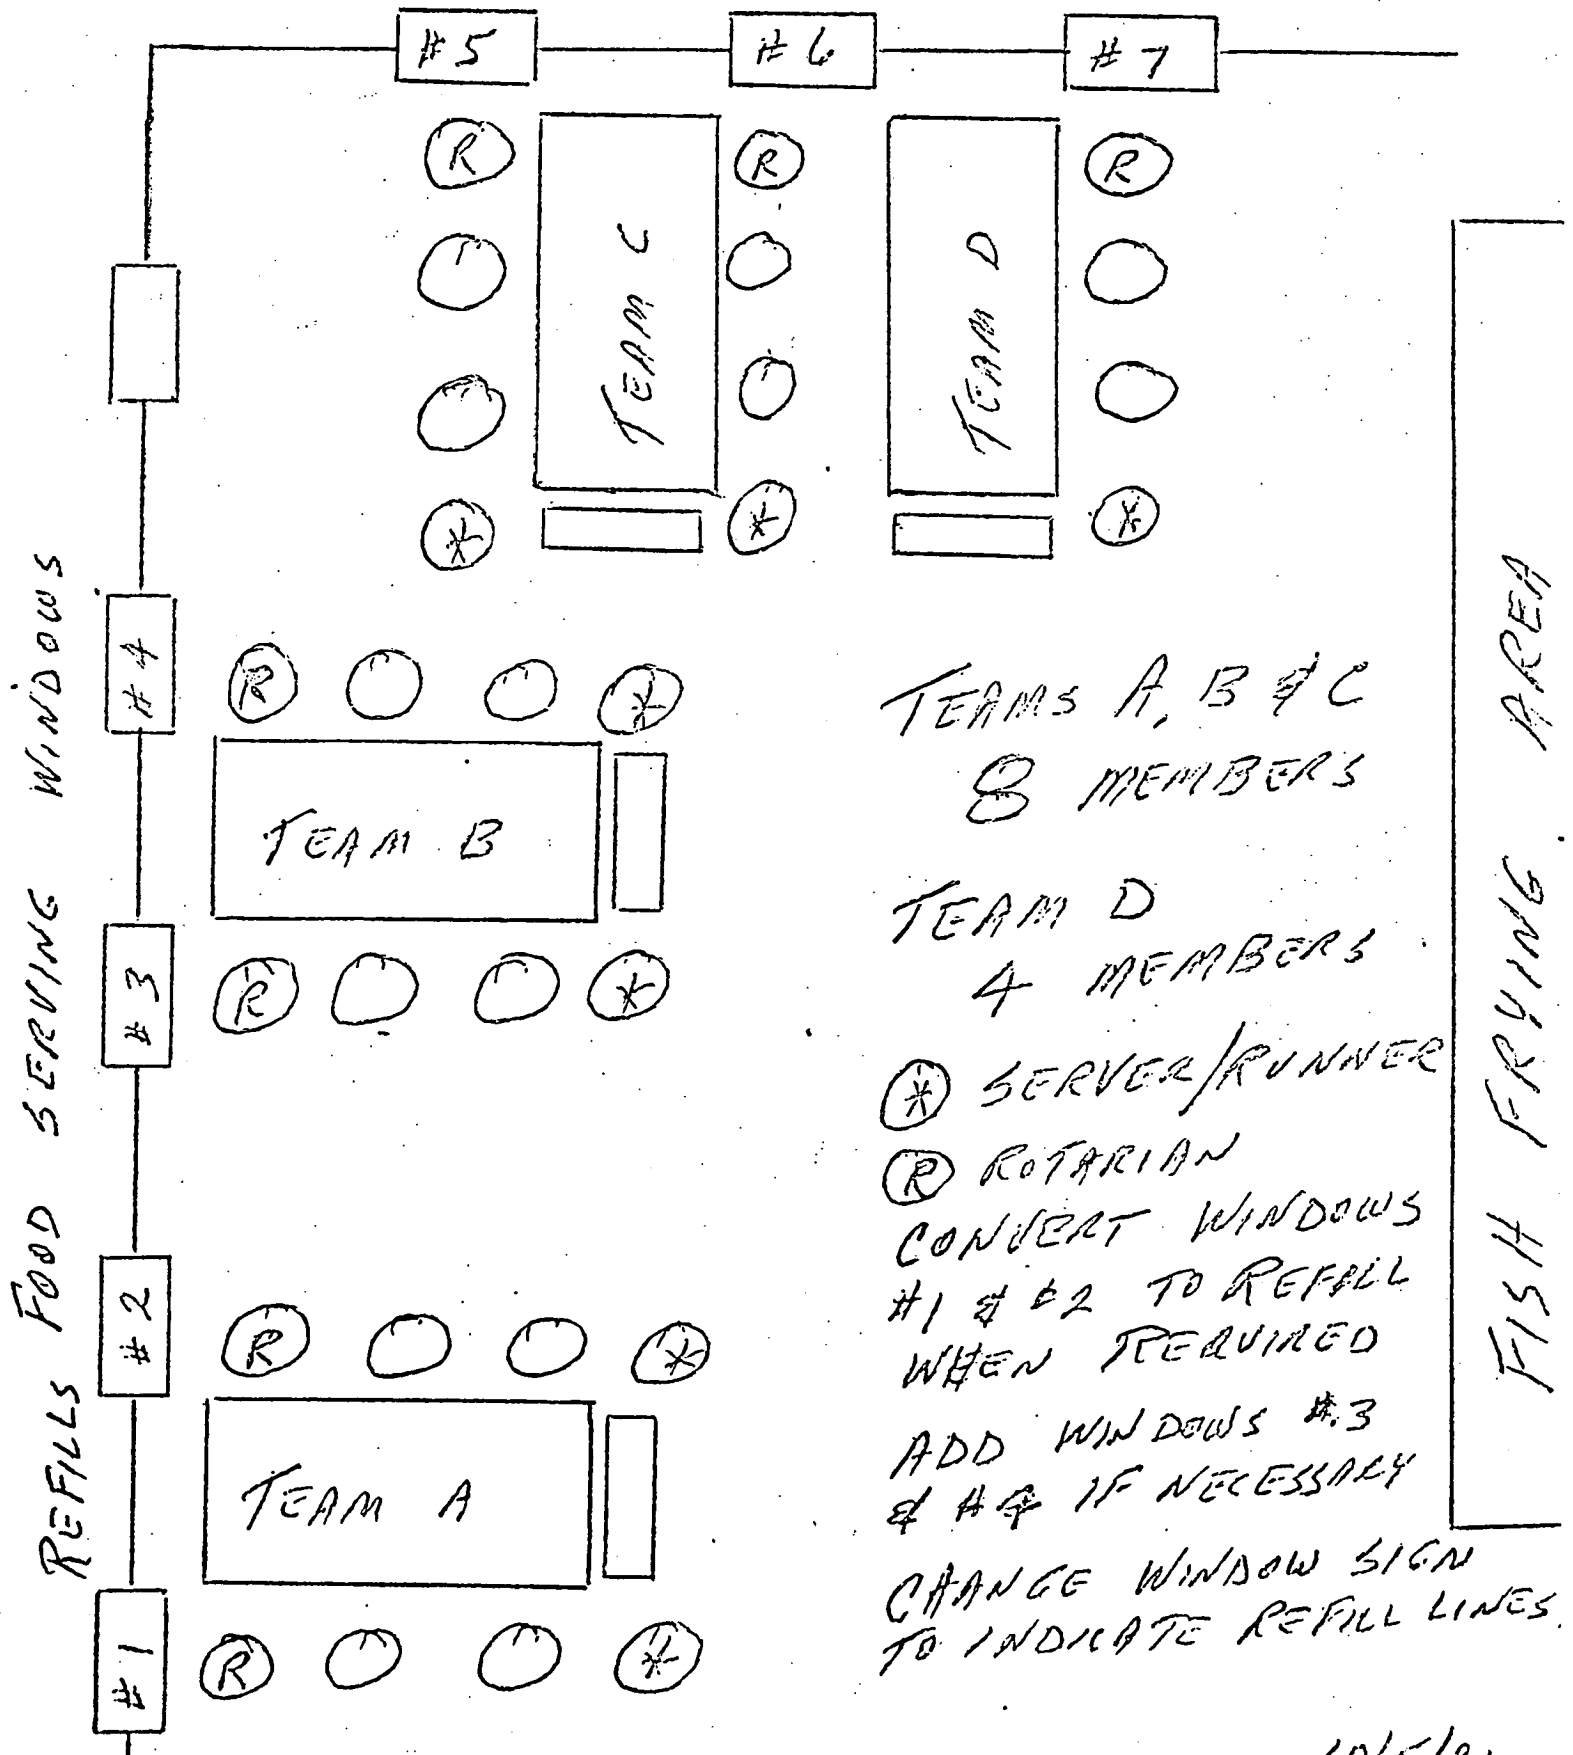 #5
#6
#7
R
R
R
TEAM C
TEAM D
*
*
*
#4
R
*
TEAM B
#3
R
*
#2
R
*
TEAM A
#1
R
*
REFILLS FOOD SERVING WINDOWS
TEAMS A, B & C
8 MEMBERS
TEAM D
4 MEMBERS
* SERVER/RUNNER
R ROTARIAN
CONVERT WINDOWS
#1 & #2 TO REFILL
WHEN REQUIRED
ADD WINDOWS #3
& #4 IF NECESSARY
CHANGE WINDOW SIGN
TO INDICATE REFILL LINES.
FISH FRYING AREA